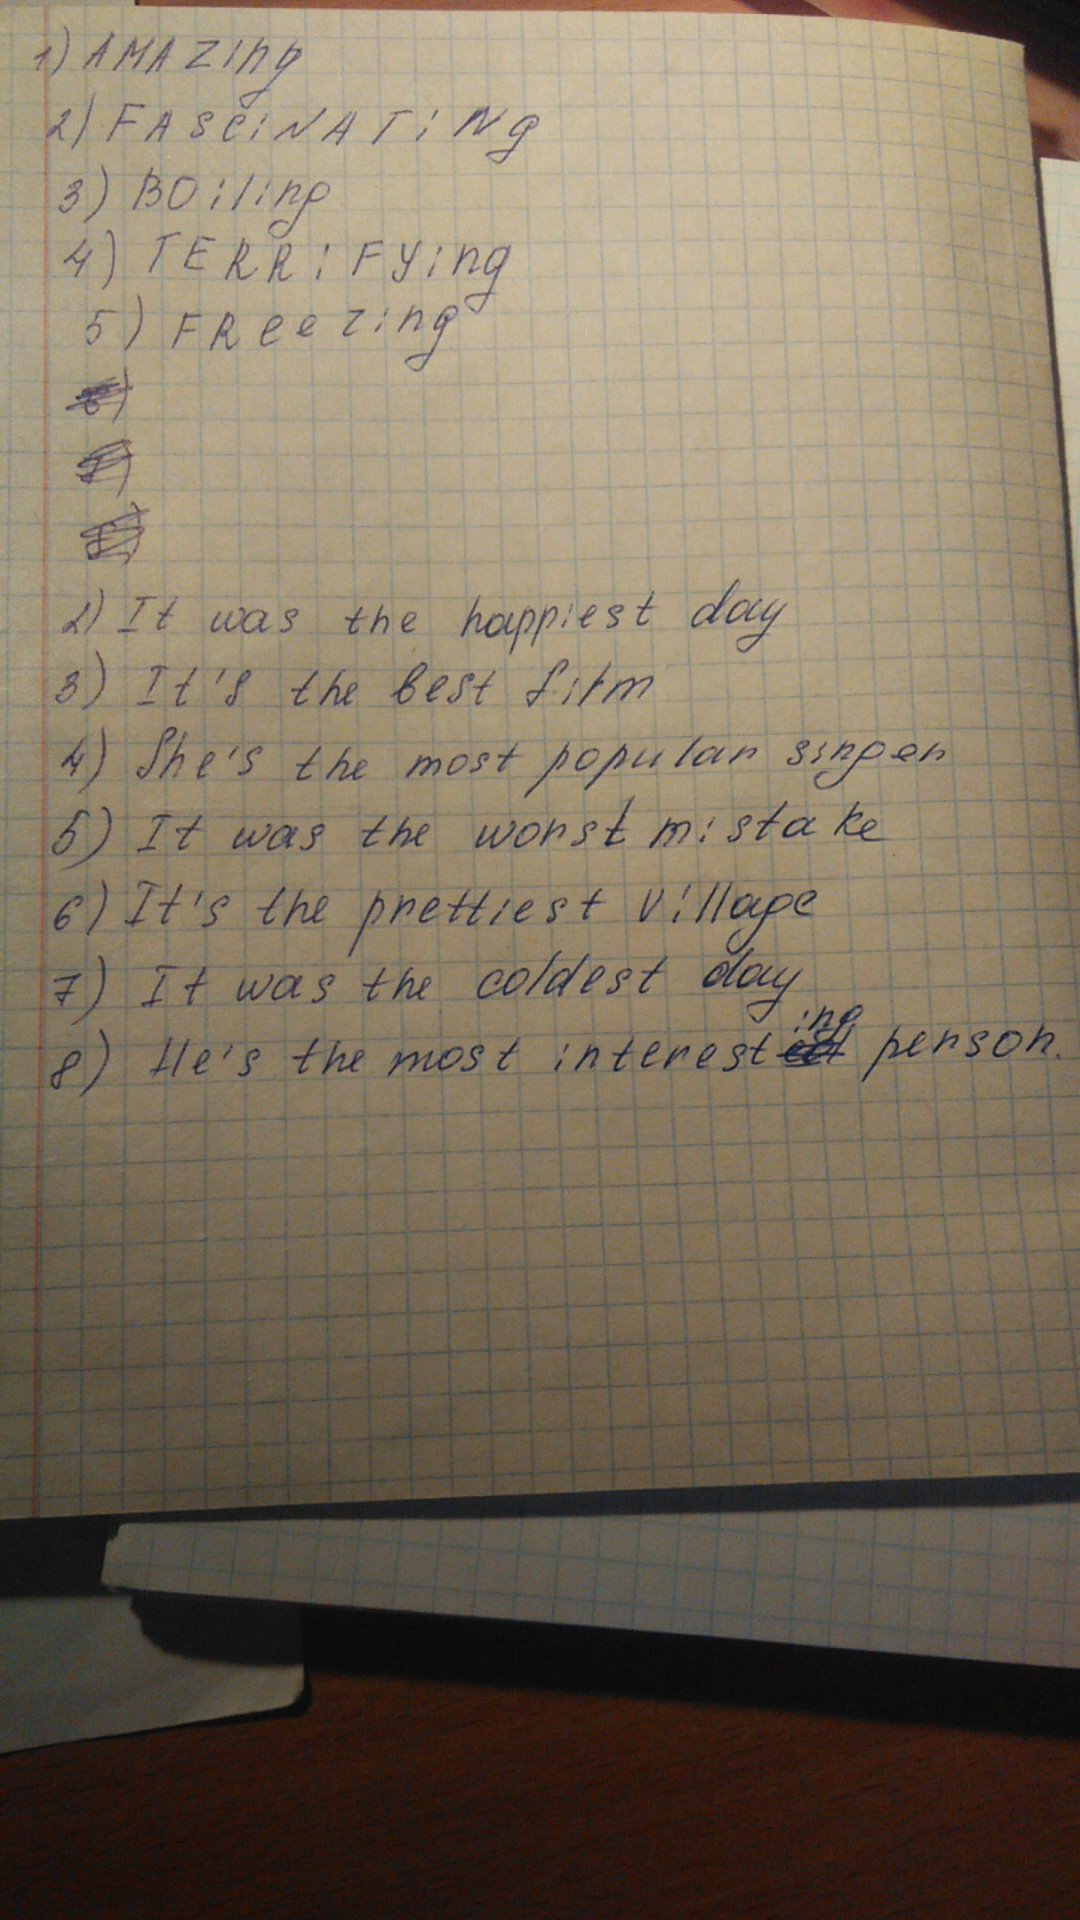 1) AMAZing
2) FASCiNATiNg
3) BOiling
4) TERRiFYing
5) FReezing
2) It was the happiest day
3) It's the best film
4) She's the most popular singer
5) It was the worst mistake
6) It's the prettiest village
7) It was the coldest day
8) He's the most interesting person.